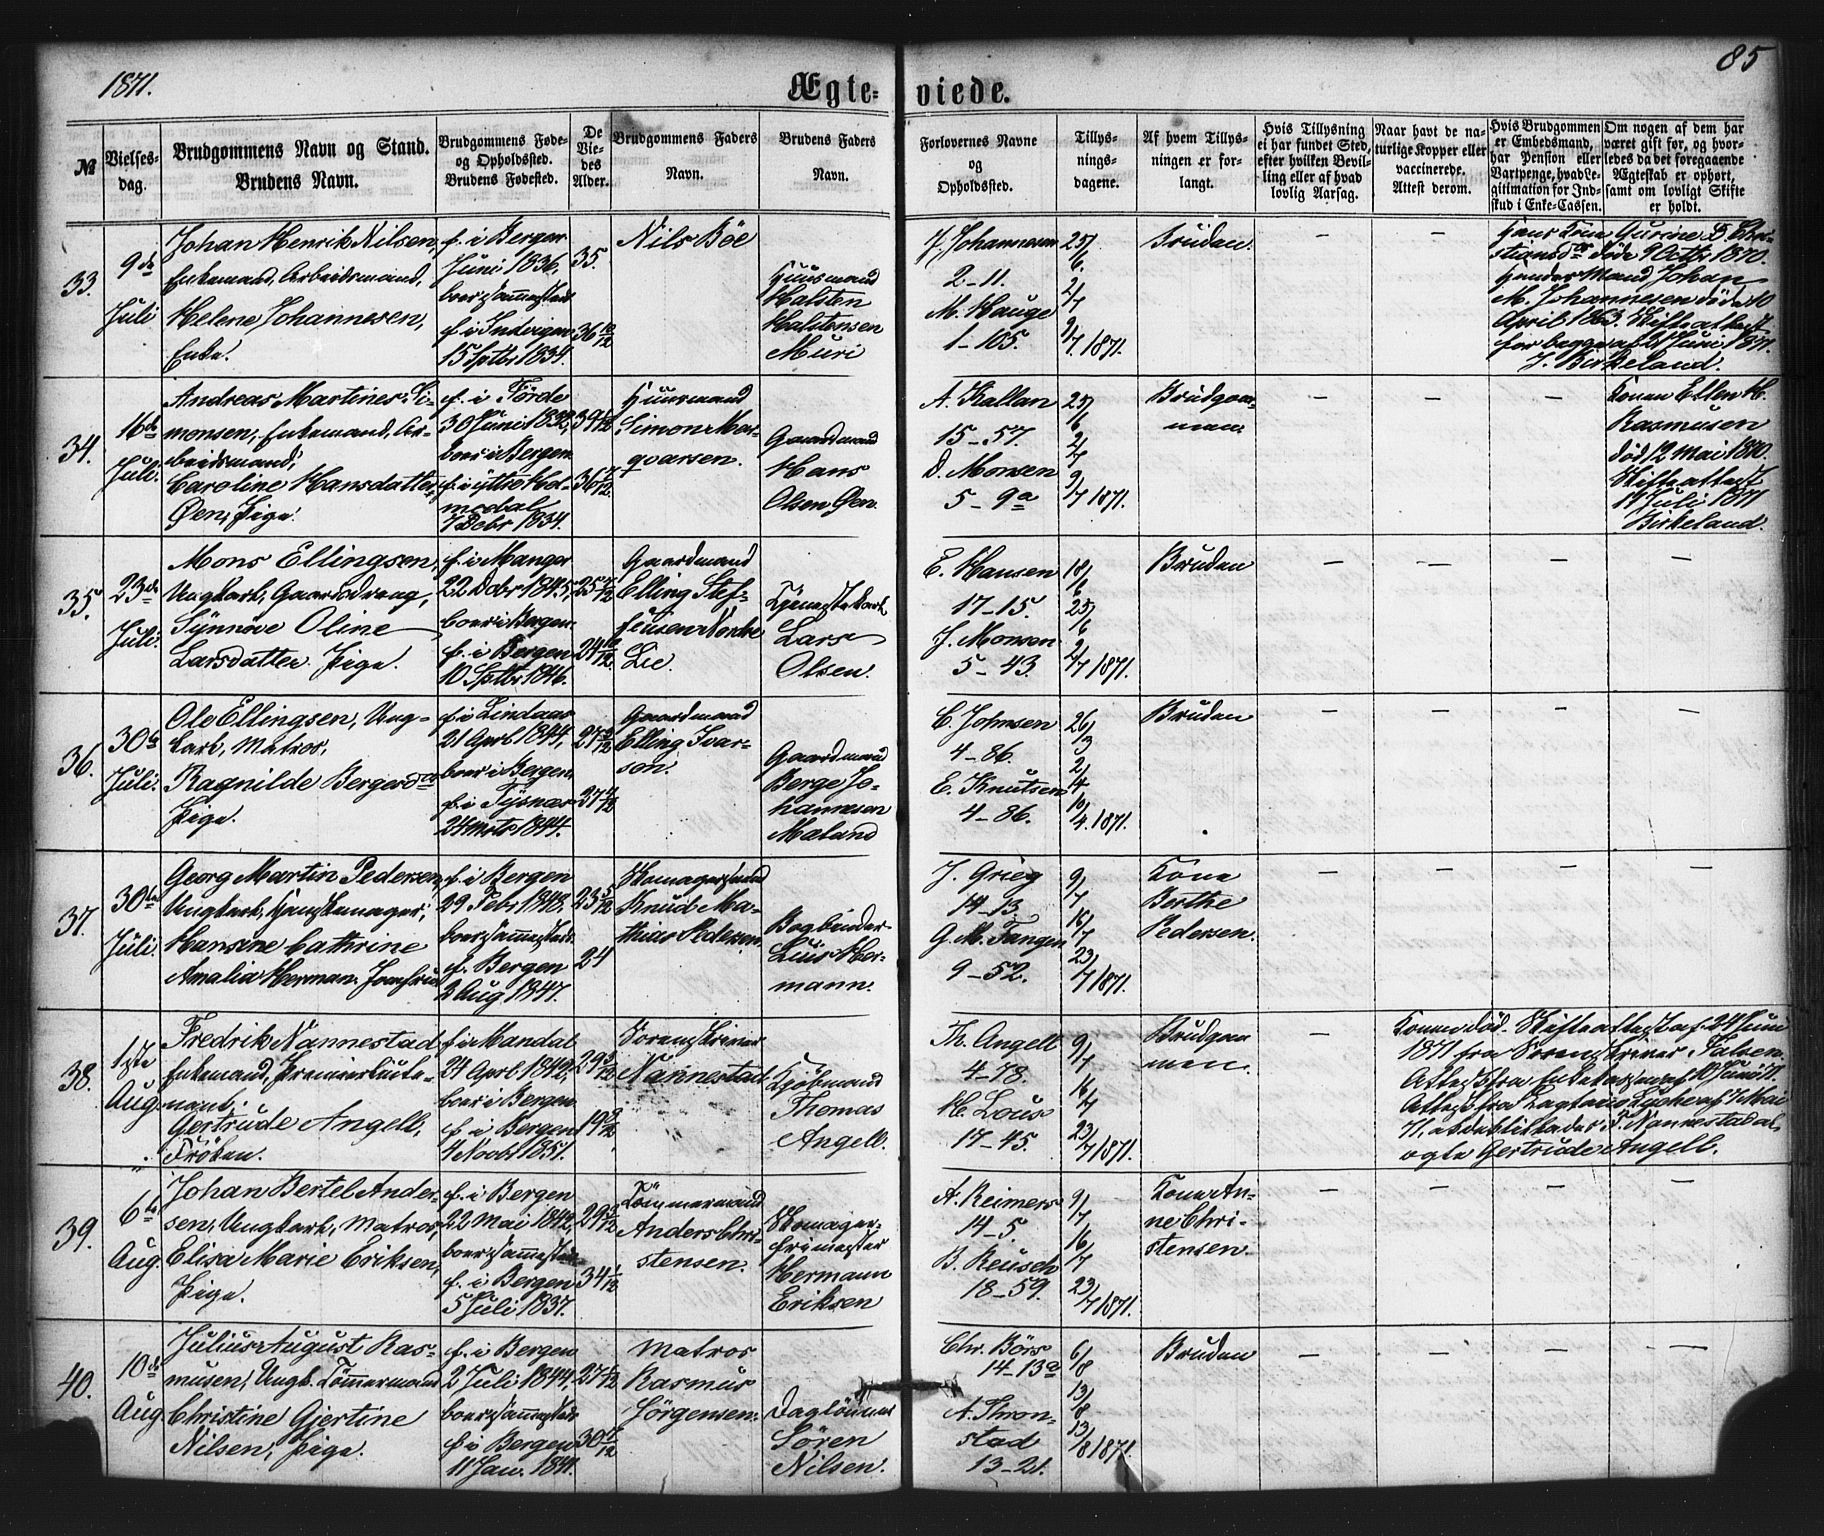 1871.
Ægte-
viede.
85
№
Vielses-
dag.
Brudgommens Navn og Stand.
Brudens Navn.
Brudgommens Føde-
og Opholdssted.
Brudens Fødested.
De
Vie-
des
Alder.
Brudgommens Faders
Navn.
Brudens Faders
Navn.
Forlovernes Navne
og
Opholdssted.
Tillys-
nings-
dagene.
Af hvem Tillys-
ningen er for-
langt.
Hvis Tillysning
ei har fundet Sted,
efter hvilken Bevil-
ling eller af hvad
lovlig Aarsag.
Naar havt de na-
turlige Kopper eller
vaccinerede.
Attest derom.
Hvis Brudgommen
er Embedsmand,
har Pension eller
Vartpenge, hvad Le-
gitimation for Ind-
skud i Enke-Cassen.
Om nogen af dem har
været gift før, og hvor-
ledes da det foregaaende
Ægteskab er ophørt,
samt om lovligt Skifte
er holdt.
33.
9de
Juli
Johan Henrik Nilsen,
Enkemand, Arbeidsmand,
Helene Johannesen,
Enke.
f. i Bergen
Juni 1836,
boer sammesteds
f. i Indvigen
15 Septbr 1834.
35.
36 10/12
Nils Bøe
Huusmand
Halsten
Halstensen
Muri
J. Johannesen
2-11.
M. Hauge
1-105.
25/6.
2/7
9/7. 1871.
Bruden.
— —
Hans Kone Gurine B. Chri-
stiansdr døde 9 Octbr 1870.
Hendes Mand Johan
M. Johannesen døde 10
April 1863. Skifteattest
for begge af 21 Juni 1871.
J. Birkeland.
34.
16de
Juli.
Andreas Martines Si-
monsen, Enkemand, Ar-
beidsmand,
Caroline Hansdatter
Øen, Pige.
f. i Førde
30 Juni 1832,
boer i Bergen
f. i yttre Hol-
medal
7 Debr 1834.
39 1/12
36 7/12
Huusmand
Simon Mar-
qvarsen.
Gaardmand
Hans
Olsen Øen.
A. Kallan
15-57.
D. Monsen
5-9a
25/6
2/7
9/7 1871.
Brudgom-
men.
— — —
Konen Ellen H.
Rasmusen
død 12 Mai 1870.
Skifteattest
19 Juli 1871
Birkeland.
35.
23de
Juli.
Mons Ellingsen,
Ungkarl, Gaardsdreng,
Synnøve Oline
Larsdatter Pige.
f. i Manger
22 Debr 1845,
boer i Bergen.
f. i Bergen
10 Septbr 1846.
25 7/12
24 10/12
Gaardmand
Elling Stef-
fensen Nordre
Lie.
Tjenestekarl
Lars
Olsen.
E. Hansen
17-15.
J. Monsen
5-43.
18/6
25/6
2/7 1871.
Bruden
— — — —
36.
30te
Juli.
Ole Ellingsen, Ung-
karl, Matros,
Ragnilde Bergesdr
Pige.
f. i Lindaas
21 Aprl 1844,
boer i Bergen
f. i Tysnæs
24 Mrts 1844.
27 3/12
27 4/12
Gaardmand
Elling Ivar-
sen.
Gaardmand
Berge Jo-
hannesen
Maland
C. Johnsen
4-86.
E. Knutsen
4-86.
26/3
2/4
10/4. 1871.
Bruden
— — — —
37.
30te
Juli.
Georg Martin Pedersen,
Ungkarl, Hanskemager,
Hansine Cathrine
Amalia Herman. Jomfrue
f. i Bergen
29 Febr 1848,
boer sammesteds
f. Bergen
2 Aug 1847.
23 5/12
24
Skomagersvend
Knud Ma-
thias Pedersen.
Bogbinder
Luis Her-
mann.
J. Grieg
14-13.
G. M. Tangen
9-52.
9/7
16/7
23/7 1871.
Kone
Berthe
Pedersen.
— — — —
38.
1ste
Aug.
Fredrik Nannestad
Enkemand, Premierleute-
nant.
Gertrude Angell,
Frøken.
f. i Mandal
24 Aprl 1842,
boer i Bergen
f. i Bergen
4 Novbr 1851.
29 3/12
19 9/12
Sorenskriver
Nannestad
Kjøbmand
Thomas
Angell.
Th. Angell
4-78.
H. Lous
17-45.
9/7
16/7
23/7 1871.
Brudgom
men.
—
Konen død. Skifteattest af 24 Juni
1871 fra Sorenskriver Falsen.
Attest fra Enkekassen af 10 Juni 71
Attest fra 1 Mai
71, F. Nannestad at
ægte Gertrude Angell.
39.
6te
Aug.
Johan Bertel Ander-
sen, Ungkarl, Matros,
Elisa Marie Eriksen,
Pige.
f. i Bergen
22 Mai 1842,
boer sammesteds
f. i Bergen
5 Juli 1837.
29 2/12
34 1/12
Tømmermand
Anders Chri-
stensen.
Skomager-
frimester
Hermann
Eriksen
A. Reimers
14-5.
B. Reusch
18-59.
9/7
16/7
23/7 1871.
Kone An-
ne Chri-
stensen.
— — — —
40.
10de
Aug
Julius August Ras-
musen, Ungk. Tømmermand
Christine Gjertine
Nilsen, Pige.
f. i Bergen
2 Juli 1844,
boer sammesteds
f. i Bergen
11 Jan. 1841.
27 1/12
30 7/12
Matros
Rasmus
Jørgensen.
Dagløner
Søren
Nilsen.
Chr. Børs
14-13a
A. Thron-
stad
13-21.
6/8
13/8
13/8 1871.
Bruden
— — — —